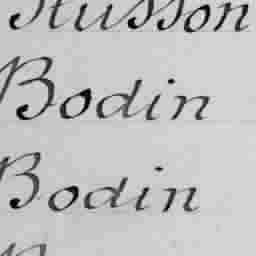 Husson
Bodin
Bodin